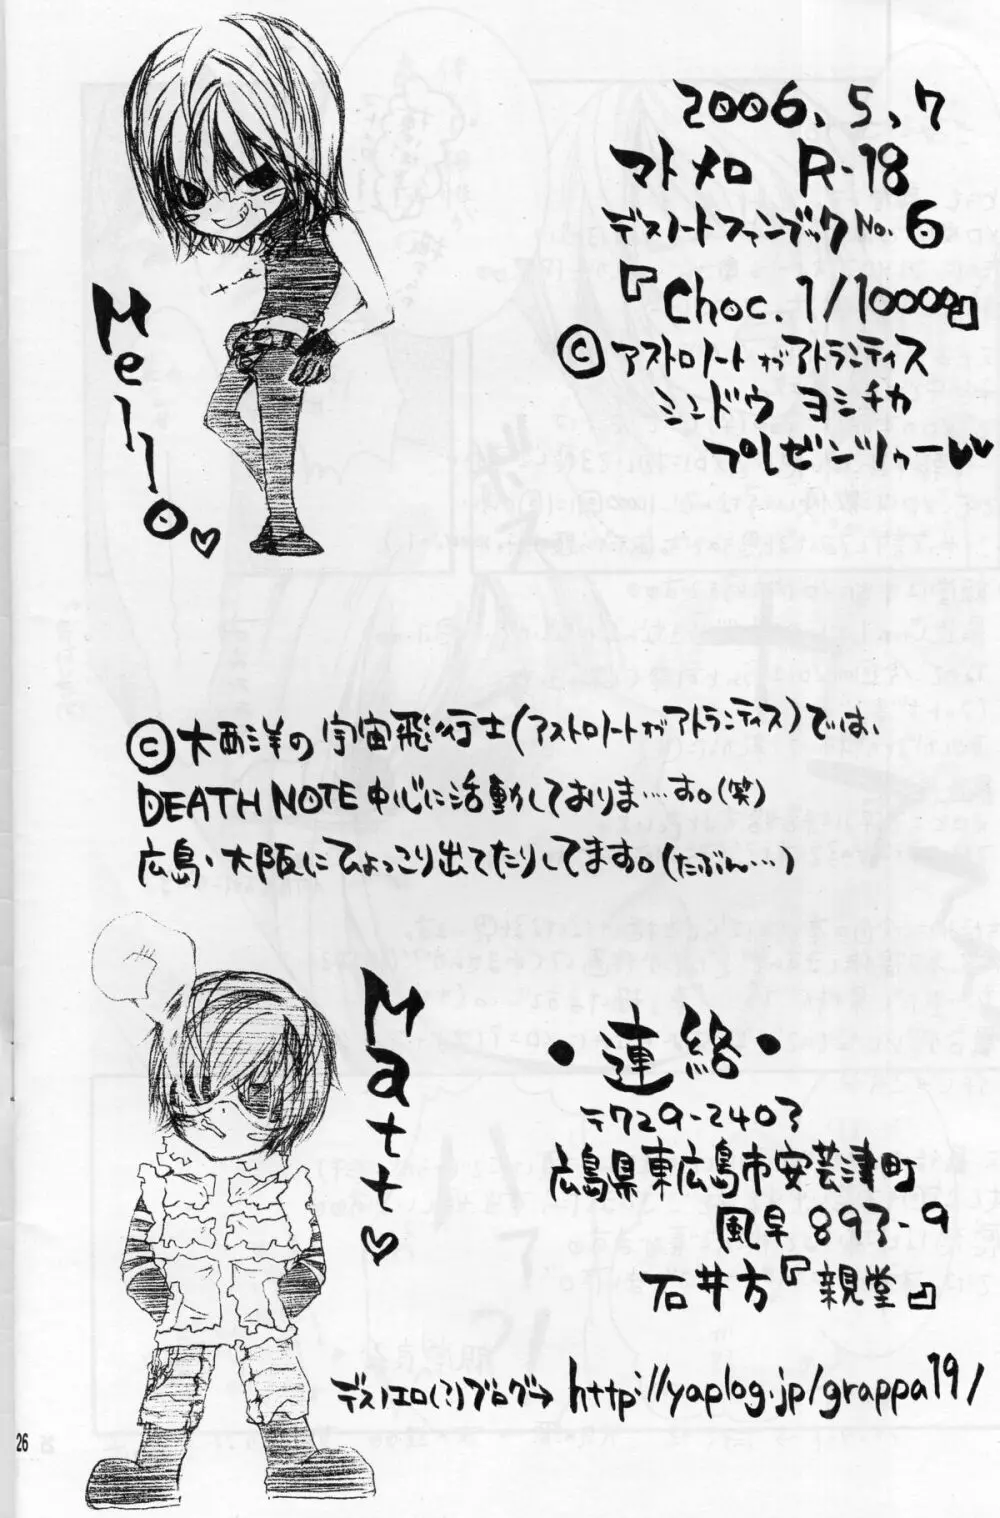 2006.5.7
マトメロ R-18
デスノートファンブックNo.6
『Choc.1/10000』
Ⓒアストロノートガアトランティス
シンドウ ヨシチカ
プレゼンツゥー♥♥
Mello♡
Ⓒ大西洋の宇宙飛行士(アストロノートガアトランティス)では、
DEATH NOTE中心に活動しておりま…す。(笑)
広島・大阪にひょっこり出てたりしてます。(たぶん…)
Matt♡
・連絡・
〒729-2403
広島県東広島市安芸津町
風早893-9
石井方『親堂』
デスノエロ(?)ブログ→ http://yaplog.jp/grappa19/
26